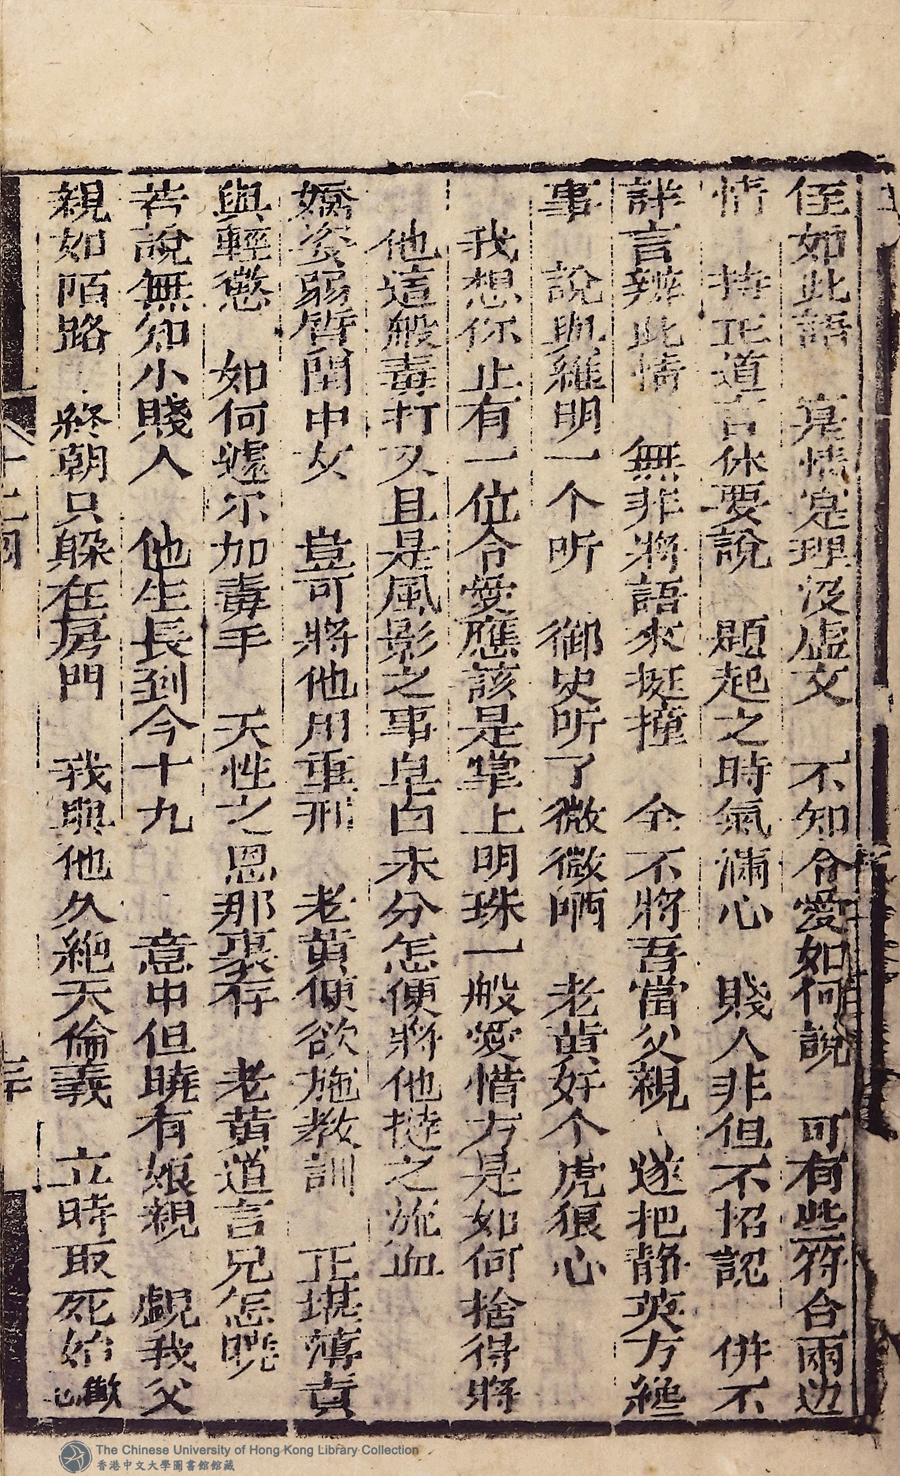 侄如此語　真情寔理沒虛文　不知令愛如何說　可有些符合兩边
情　持正道言休要說　題起之時氣滿心　賤人非但不招認　併不
詳言辨此情　無非將語來挺撞　全不將吾當父親　遂把靜英方纔
事　說與維明一个听　御史听了微微哂　老黄好个虎狠心
我想你止有一位令愛應該是掌上明珠一般愛惜方是如何捨得將
他這般毒打又且是風影之事皂白未分怎便將他撻之流血
嬌姿弱質閨中女　豈可將他用重刑　老黄便欲施教訓　正堪薄責
與輕懲　如何遽尔加毒手　天性之恩那裏存　老黄道言兄怎曉
若說無知小賤人　他生長到今十九　意中但曉有娘親　覷我父
親如陌路　終朝只躲在房門　我與他久絕天倫義　立時取死始
十二囘